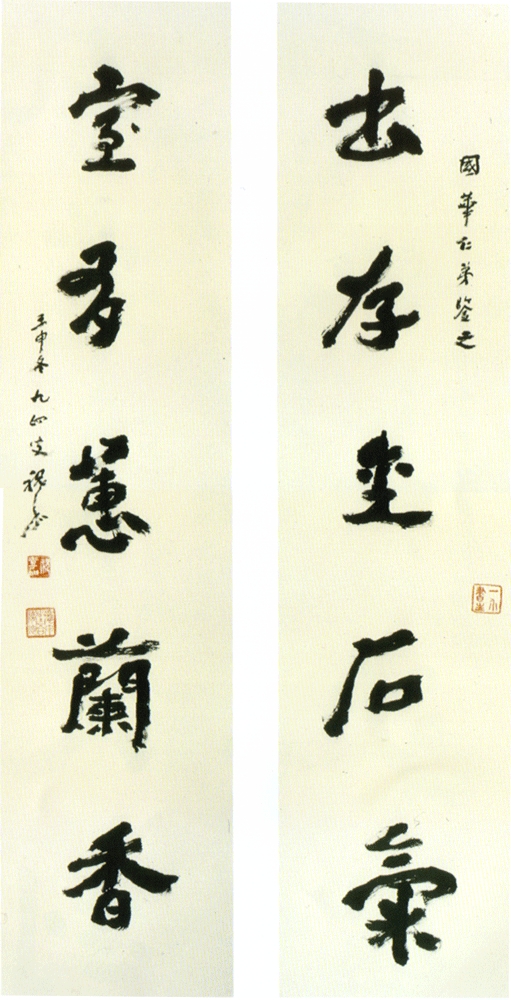 國華仁弟鑒之
出存金石氣
一介書生
室有蕙蘭香
壬申冬九四叟